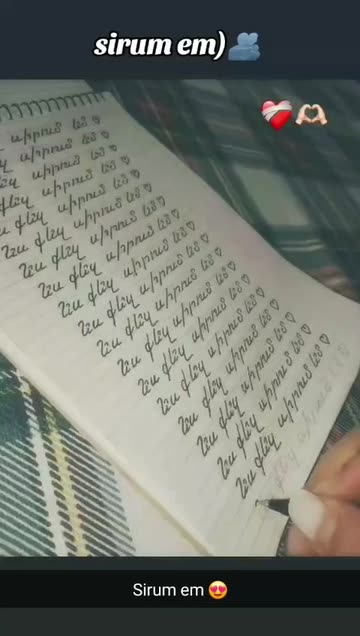 sirum em)
սիրում եմ♡
զ սիրում եմ♡
եզ սիրում եմ♡
քեզ սիրում եմ♡
ս քեզ սիրում եմ♡
Ես քեզ սիրում եմ♡
Ես քեզ սիրում եմ♡
Ես քեզ սիրում եմ♡
Ես քեզ սիրում եմ♡
Ես քեզ սիրում եմ♡
Ես քեզ սիրում եմ♡
Ես քեզ սիրում եմ♡
Ես քեզ սիրում եմ♡
Ես քեզ սիրում եմ♡
Ես քեզ սիրում եմ♡
Ես քեզ սիրում եմ♡
Sirum em 😍